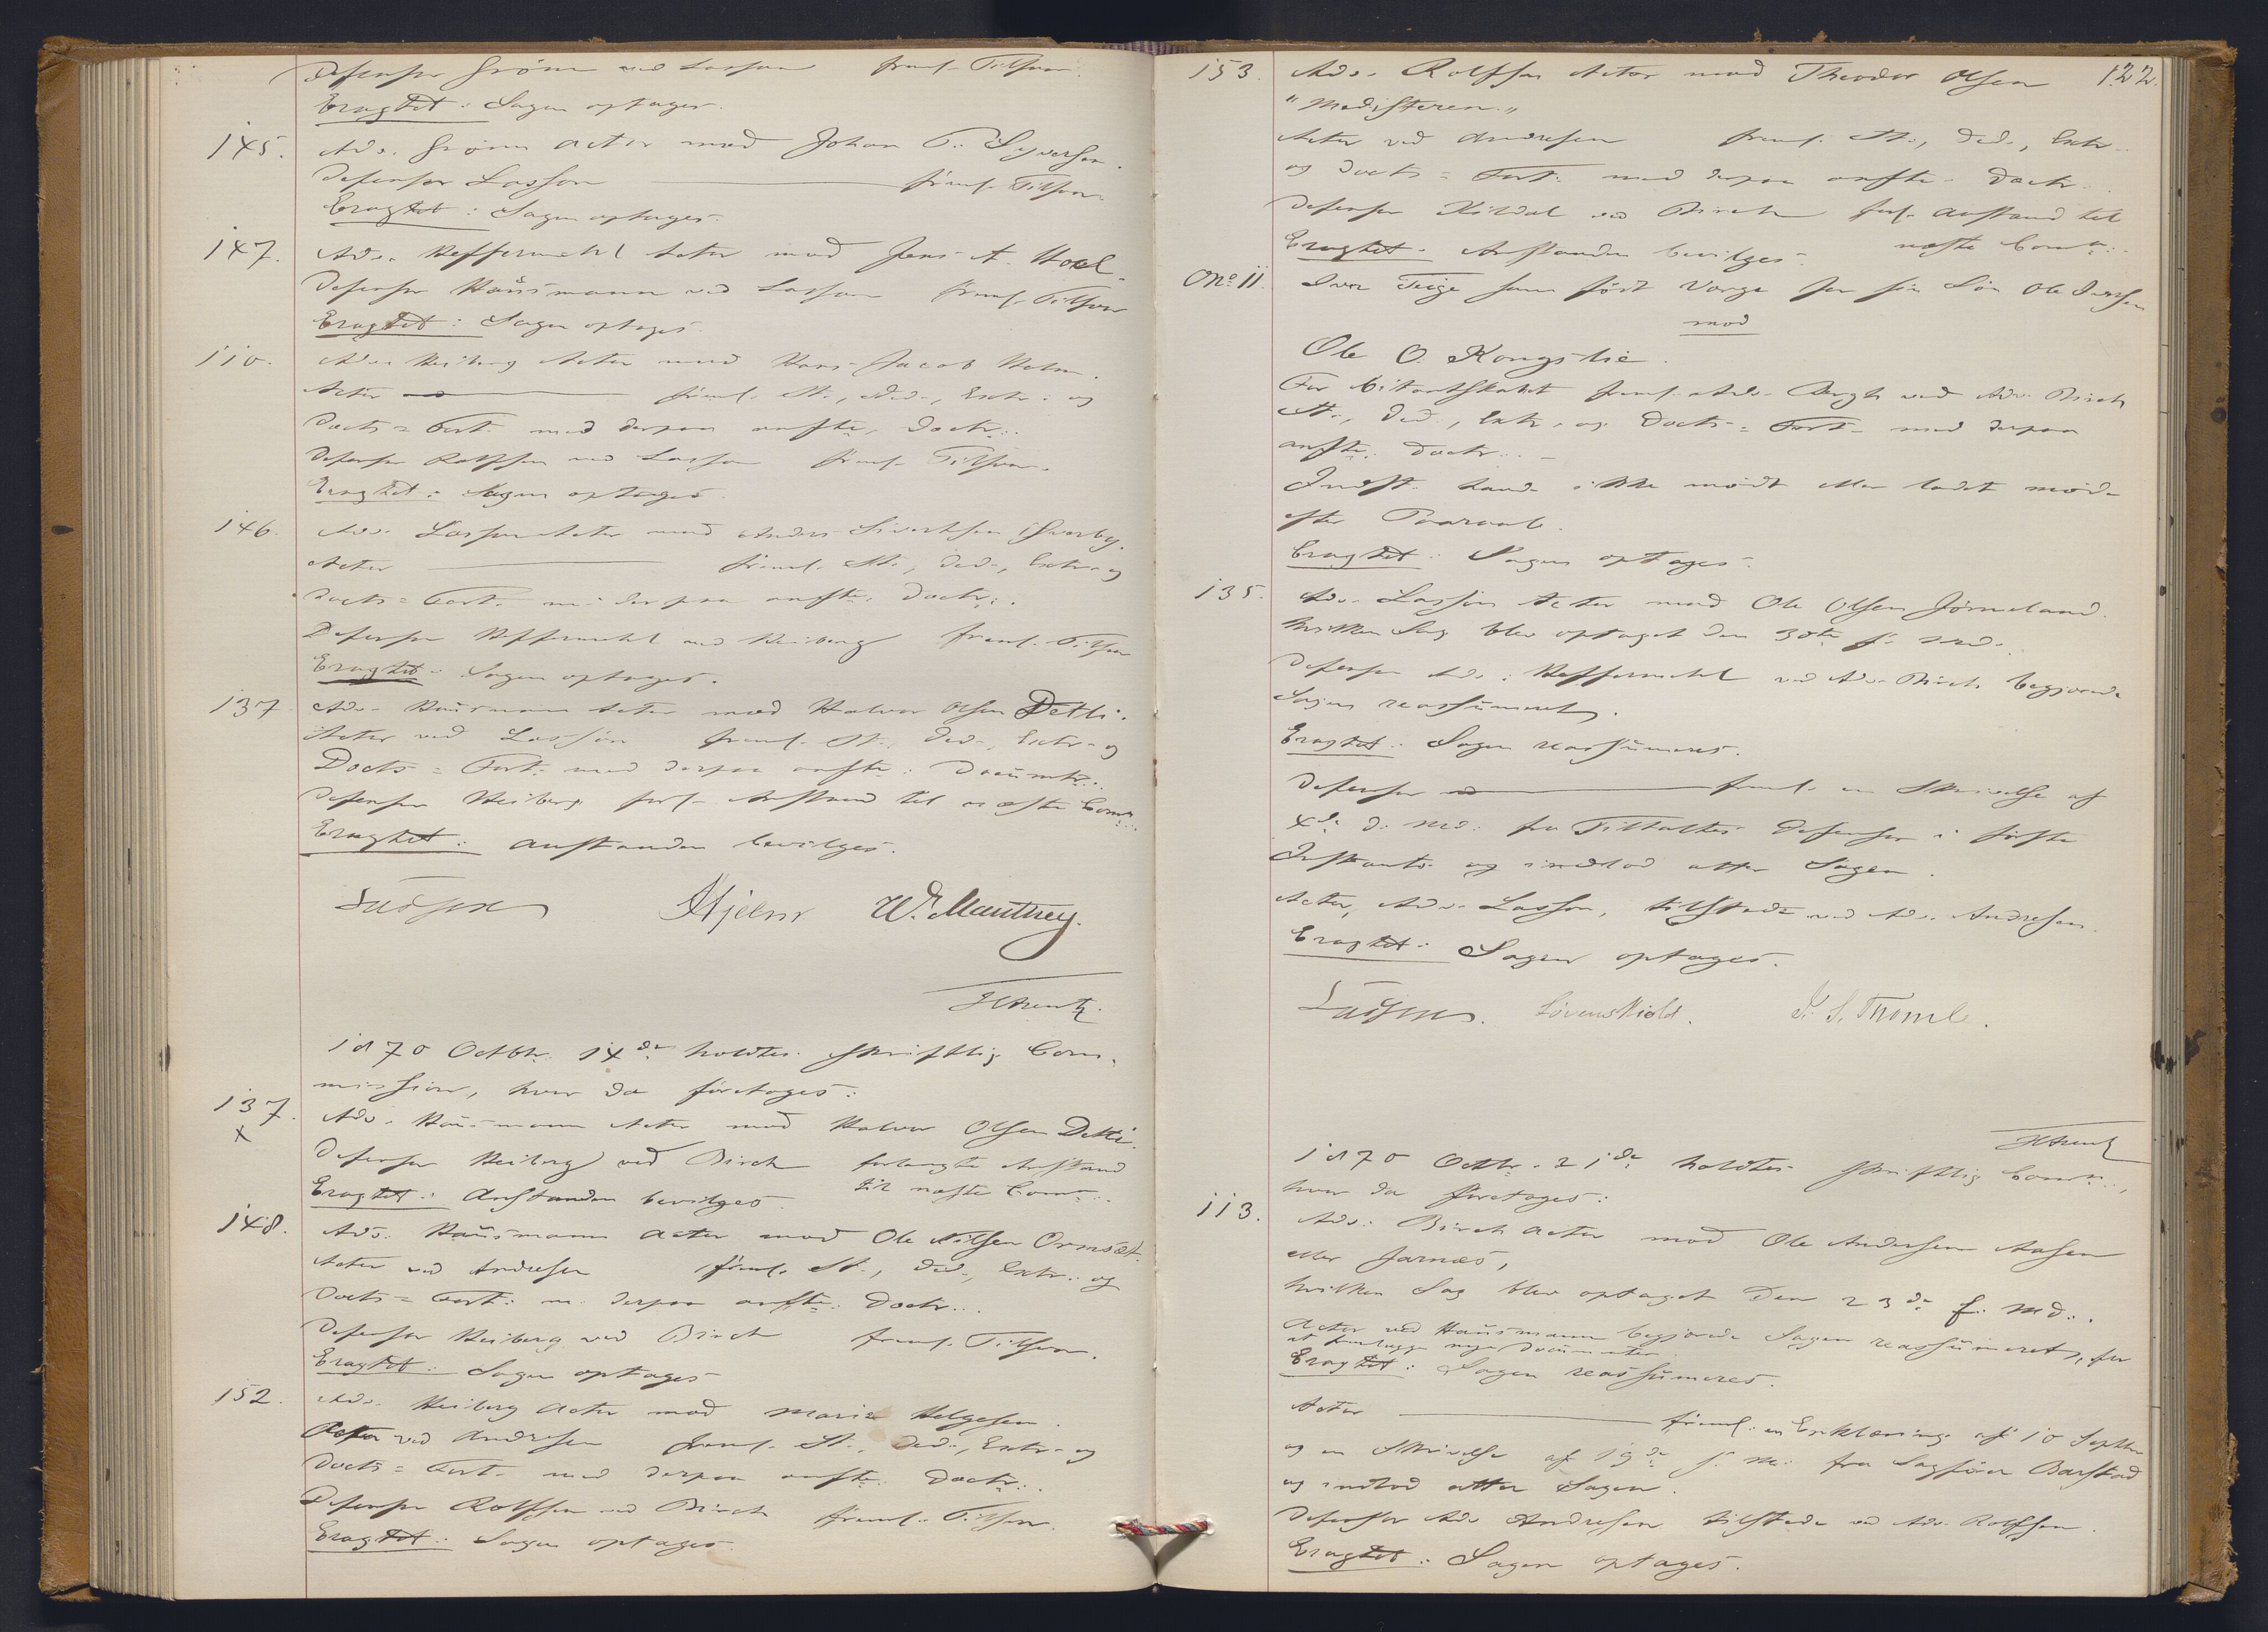 Defensor Grönn ved Lasson freml. Tilsvar.
Eragtet: Sagen optages.
145. Adv. Grönn Actor mod Johan T. Syversen.
Defensor Lasson freml. Tilsvar.
Eragtet: Sagen optages.
147. Adv. Heffermehl Actor mod Jens A. Hoel.
Defensor Hausmann ved Lasson freml. Tilsvar
Eragtet: Sagen optages.
110. Adv. Heiberg Actor mod Hans Jacob Holm.
Actor freml. St., Ded., Extr. og
Docts = Fort. med derpaa anfte. Doctr.
Defensor Rolfsen ved Lasson freml. Tilsvar.
Eragtet: Sagen optages.
146. Adv. Lasson Actor mod Anders Sivertsen
Actor freml. St., Ded., Extr. og
Docts = Fort. m. derpaa anfte. Doctr.
Defensor Heffermehl ved Heiberg freml. Tilsvar
Eragtet: Sagen optages.
137 Adv. Hausmann Actor mod Halvor Olsen Detli.
Actor ved Lasson freml. St., Ded., Extr. og
Docts = Fort. med derpaa anfte. Documtr.
Defensor Heiberg forl. Anstand til næste Comn.
Eragtet: Anstanden bevilges.
Lasson Hjelm W. Manthey.
HArentz.
1870 Octbr. 14de holdtes skriftlig Com-
mission, hvor da foretoges:
137. x Adv. Hausmann Actor mod Halvor Olsen Detli.
Defensor Heiberg ved Birch forlangte Anstand
til næste Comn.
Eragtet: Anstanden bevilges.
148. Adv. Hausmann Actor mod Ole Nilsen Ormsæt.
Actor ved Andresen freml. St., Ded., Extr. og
Docts = Fort. m. derpaa anfte. Doctr.
Defensor Heiberg ved Birch freml. Tilsvar.
Eragtet: Sagen optages
152. Adv. Heiberg Actor mod Marie Helgesen.
Actor ved Andresen freml. St., Ded., Extr. og
Docts = Fort. med derpaa anfte. Doctr.
Defensor Rolfsen ved Birch freml. Tilsvar.
Eragtet: Sagen optages.
122.
153. Adv. Rolfsen Actor mod Theodor Olsen
"Madisteren."
Actor ved Andresen freml. St., Ded., Extr.
og Docts = Fort. med derpaa anfte. Doctr.
Defensor Kildal ved Birch forl. Anstand til
næste Comn.
Eragtet: Anstanden bevilges.
No 11. Iver Teige som født Værge for sin Søn Ole Iversen
mod
Ole O. Kongslie.
For Citantskabet freml. Adv. Bergh ved Adv. Birch
St., Ded., Extr. og Docts = Fort. med derpaa
anfte. Doctr.
Indst. havde ikke mødt eller ladet møde
efter Paaraab.
Eragtet: Sagen optages.
135. Adv. Lasson Actor mod Ole Olsen Jörneland.
hvilken Sag blev optaget den 30te f. Md.
Defensor Adv. Heffermehl ved Adv. Birch begjærede
Sagen reassumeret.
Eragtet: Sagen reassumeres.
Defensor freml. en Skrivelse af
4de d. Md. fra Tiltaltes Defensor i første
Instants og indlod atter Sagen.
Actor, Adv. Lasson, tilstede ved Adv. Andresen.
Eragtet: Sagen optages.
Lasson. Løvenskiold. J. S. Thomle.
HArentz
1870 Octbr. 21de holdtes skriftlig Comn.,
hvor da foretoges:
113. Adv. Birch Actor mod Ole Andersen Aasen
eller Jarnæs,
hvilken Sag blev optaget den 23de f. Md.
Actor ved Hausmann begjærede Sagen reassumeret, for
at fremlægge nye Documenter.
Eragtet: Sagen reassumeres.
Actor freml. en Erklæring af 10 Septbr
og en Skrivelse af 19de f. M. fra Sagfører Barstad
og indlod atter Sagen.
Defensor Adv Andresen tilstede ved Adv. Rolfsen.
Eragtet: Sagen optages.